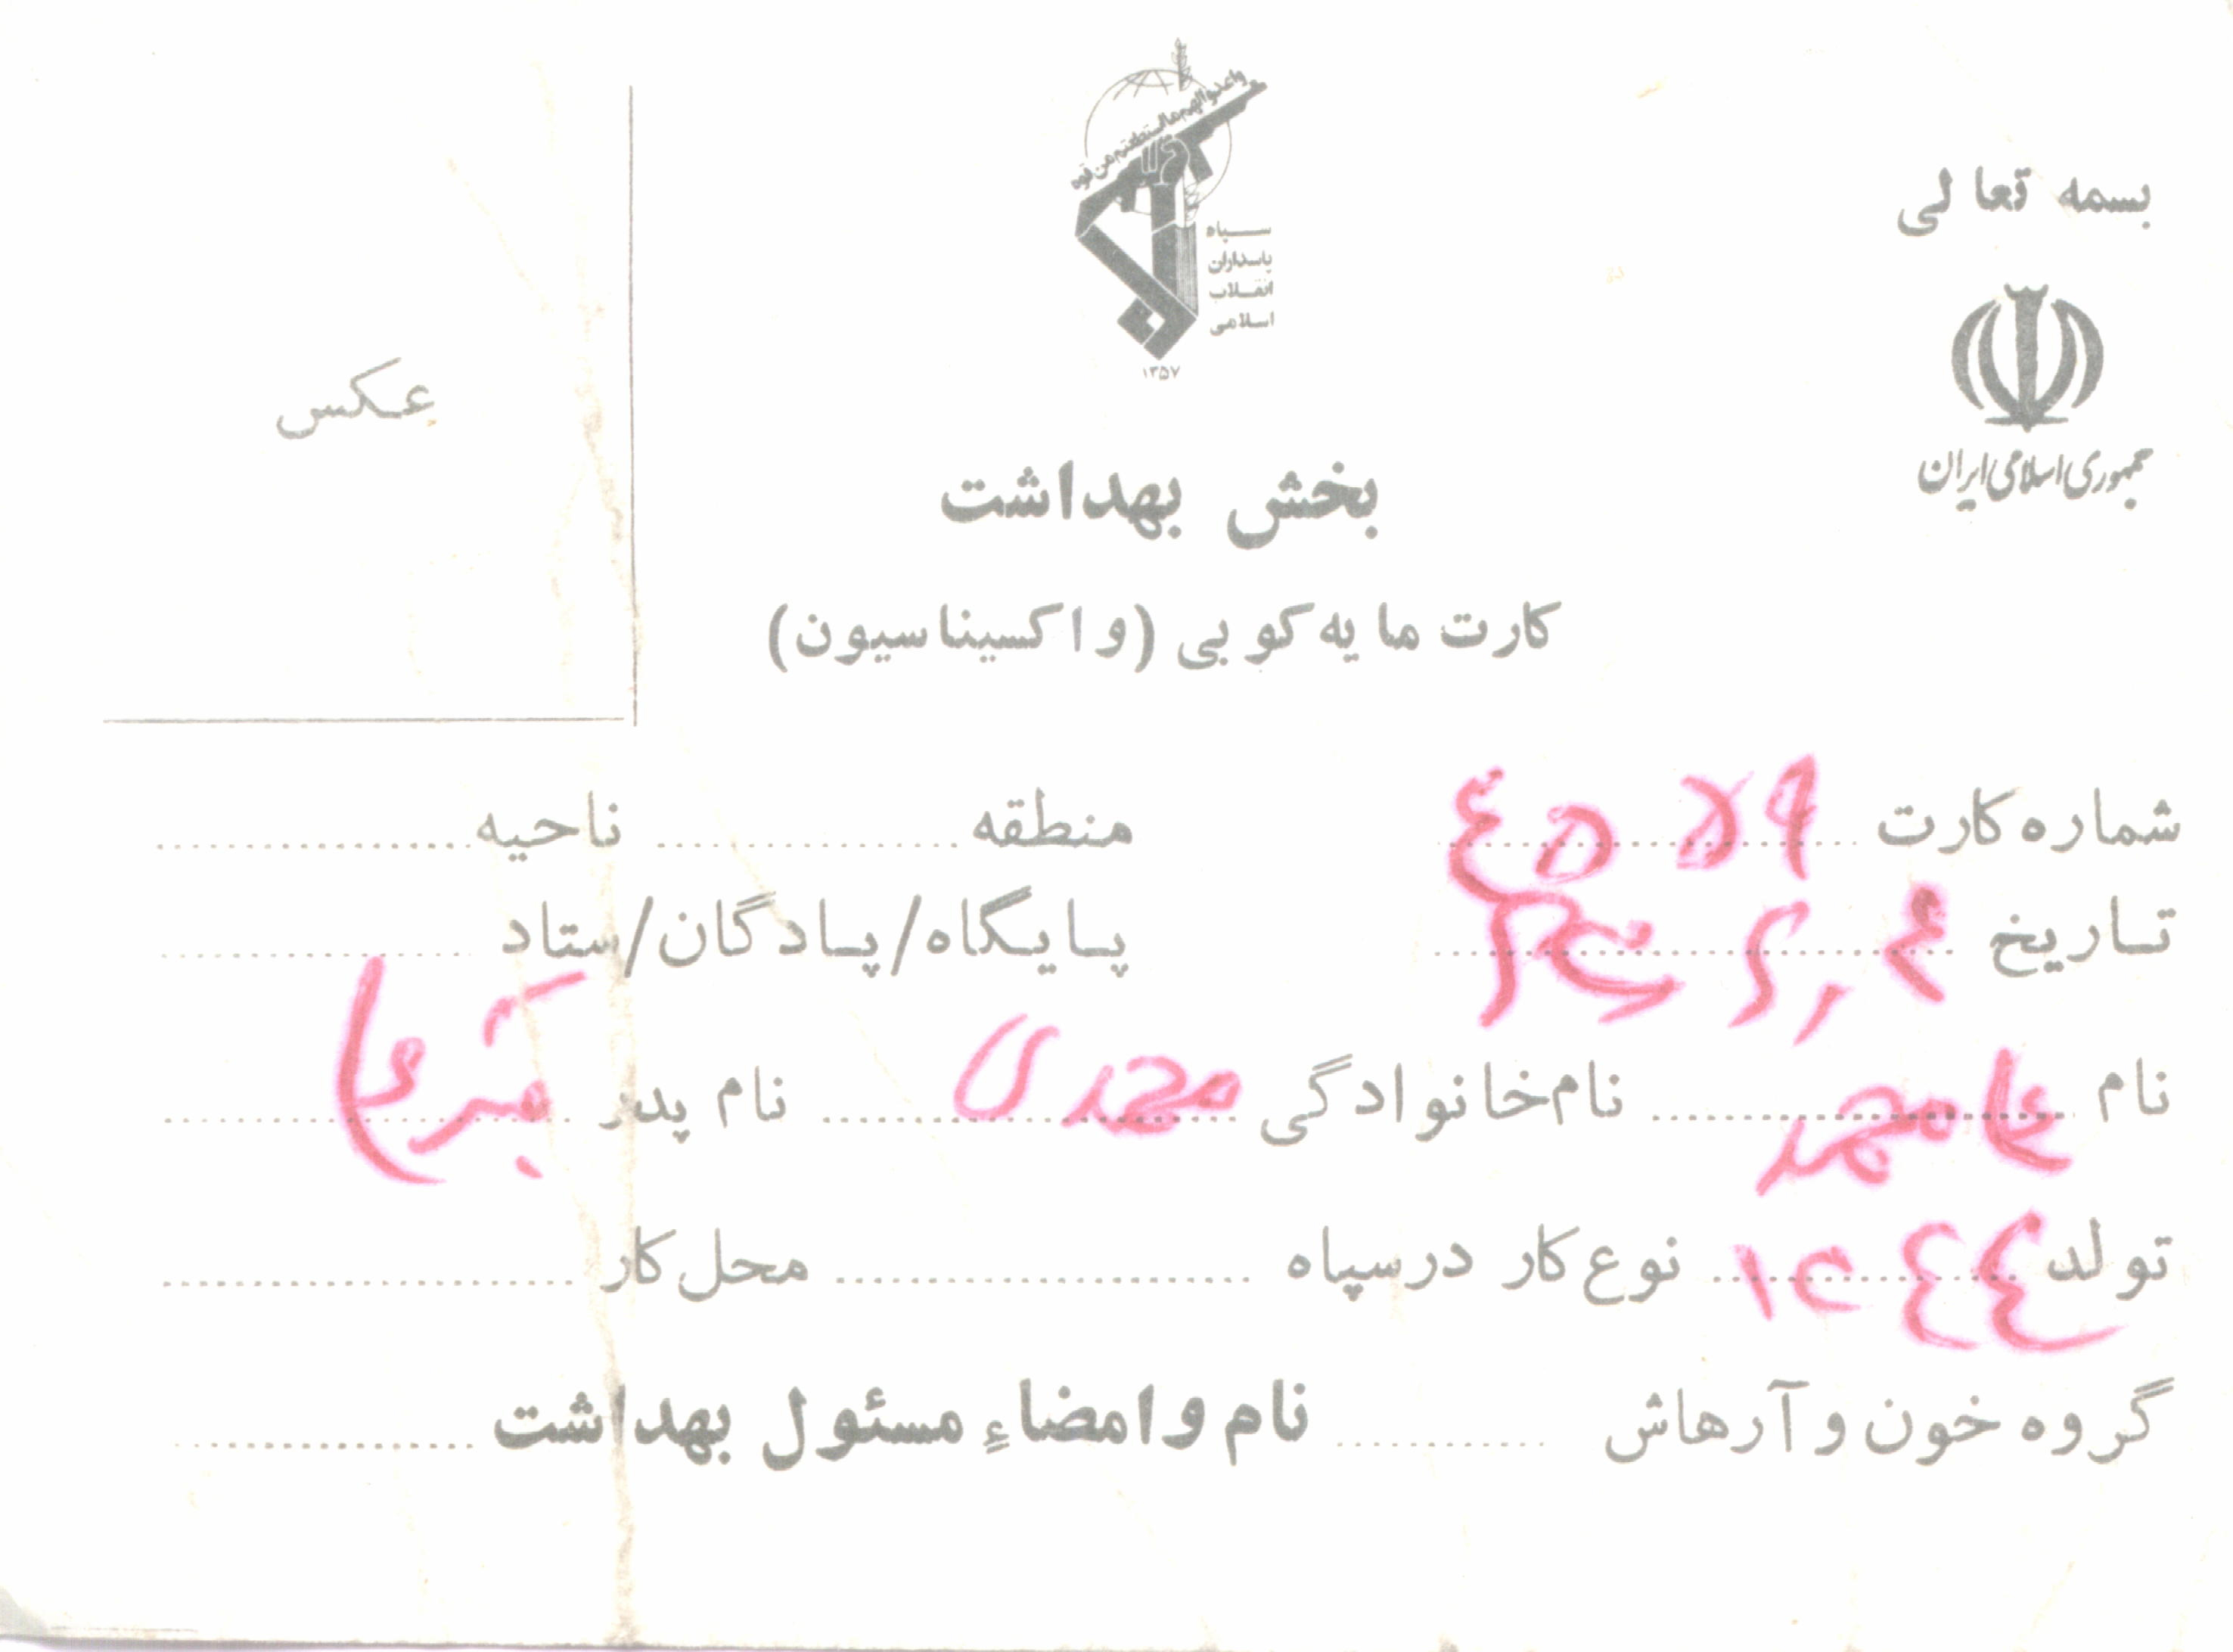 بسمه تعالی
واعدوا لهم ما استطعتم من قوه
سپاه
پاسداران
انقلاب
اسلامی
۱۳۵۷
جمهوری اسلامی ایران
عکس
بخش بهداشت
کارت مایه کوبی (واکسیناسیون)
شماره کارت منطقه ناحیه
تاریخ پایگاه/پادگان/ستاد
نام علی محمد نام خانوادگی محمدی نام پدر
تولد ۱۳٤٤ نوع کار در سپاه محل کار
گروه خون و آرهاش نام و امضاءِ مسئول بهداشت